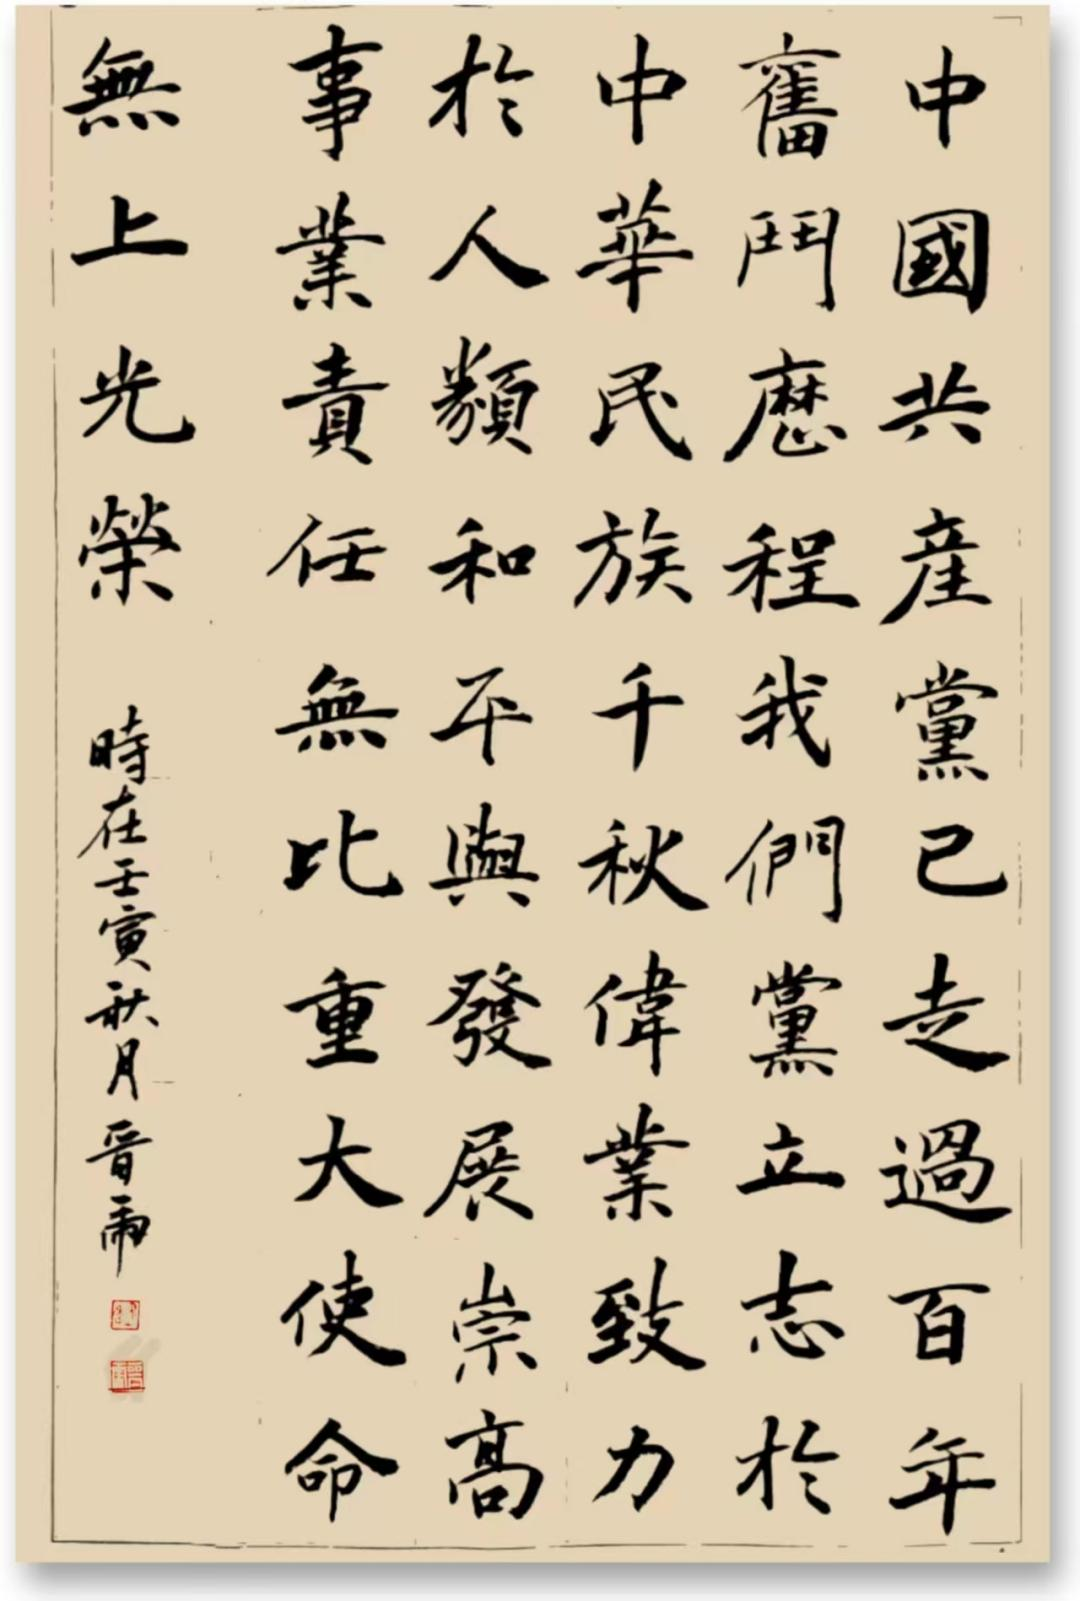 中國共產黨已走過百年
奮鬥歷程我們黨立志於
中華民族千秋偉業致力
於人類和平與發展崇高
事業責任無比重大使命
無上光榮
時在壬寅秋月晉